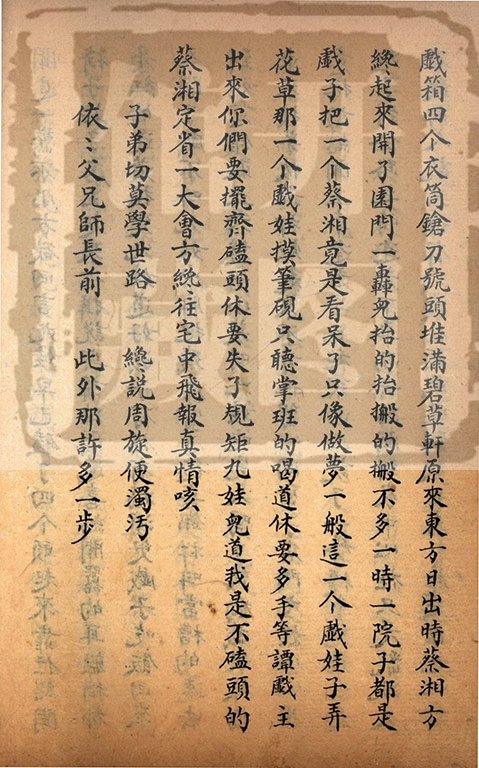 戲箱四个衣筒鎗刀號頭堆滿碧草軒原來東方日出時蔡湘方
纔起來開了園門一轟兒抬的抬搬的搬不多一時一院子都是
戲子把一个蔡湘竟是看呆了只像做夢一般這一个戲娃子弄
花草那一个戲娃摸筆硯只聽掌班的喝道休要多手等譚戲主
出來你們要擺齊磕頭休要失了規矩九娃兒道我是不磕頭的
蔡湘定省一大會方纔往宅中飛報真情咳
子弟切莫學世路 纔說周旋便濁汚
依〻父兄師長前 此外那許多一步